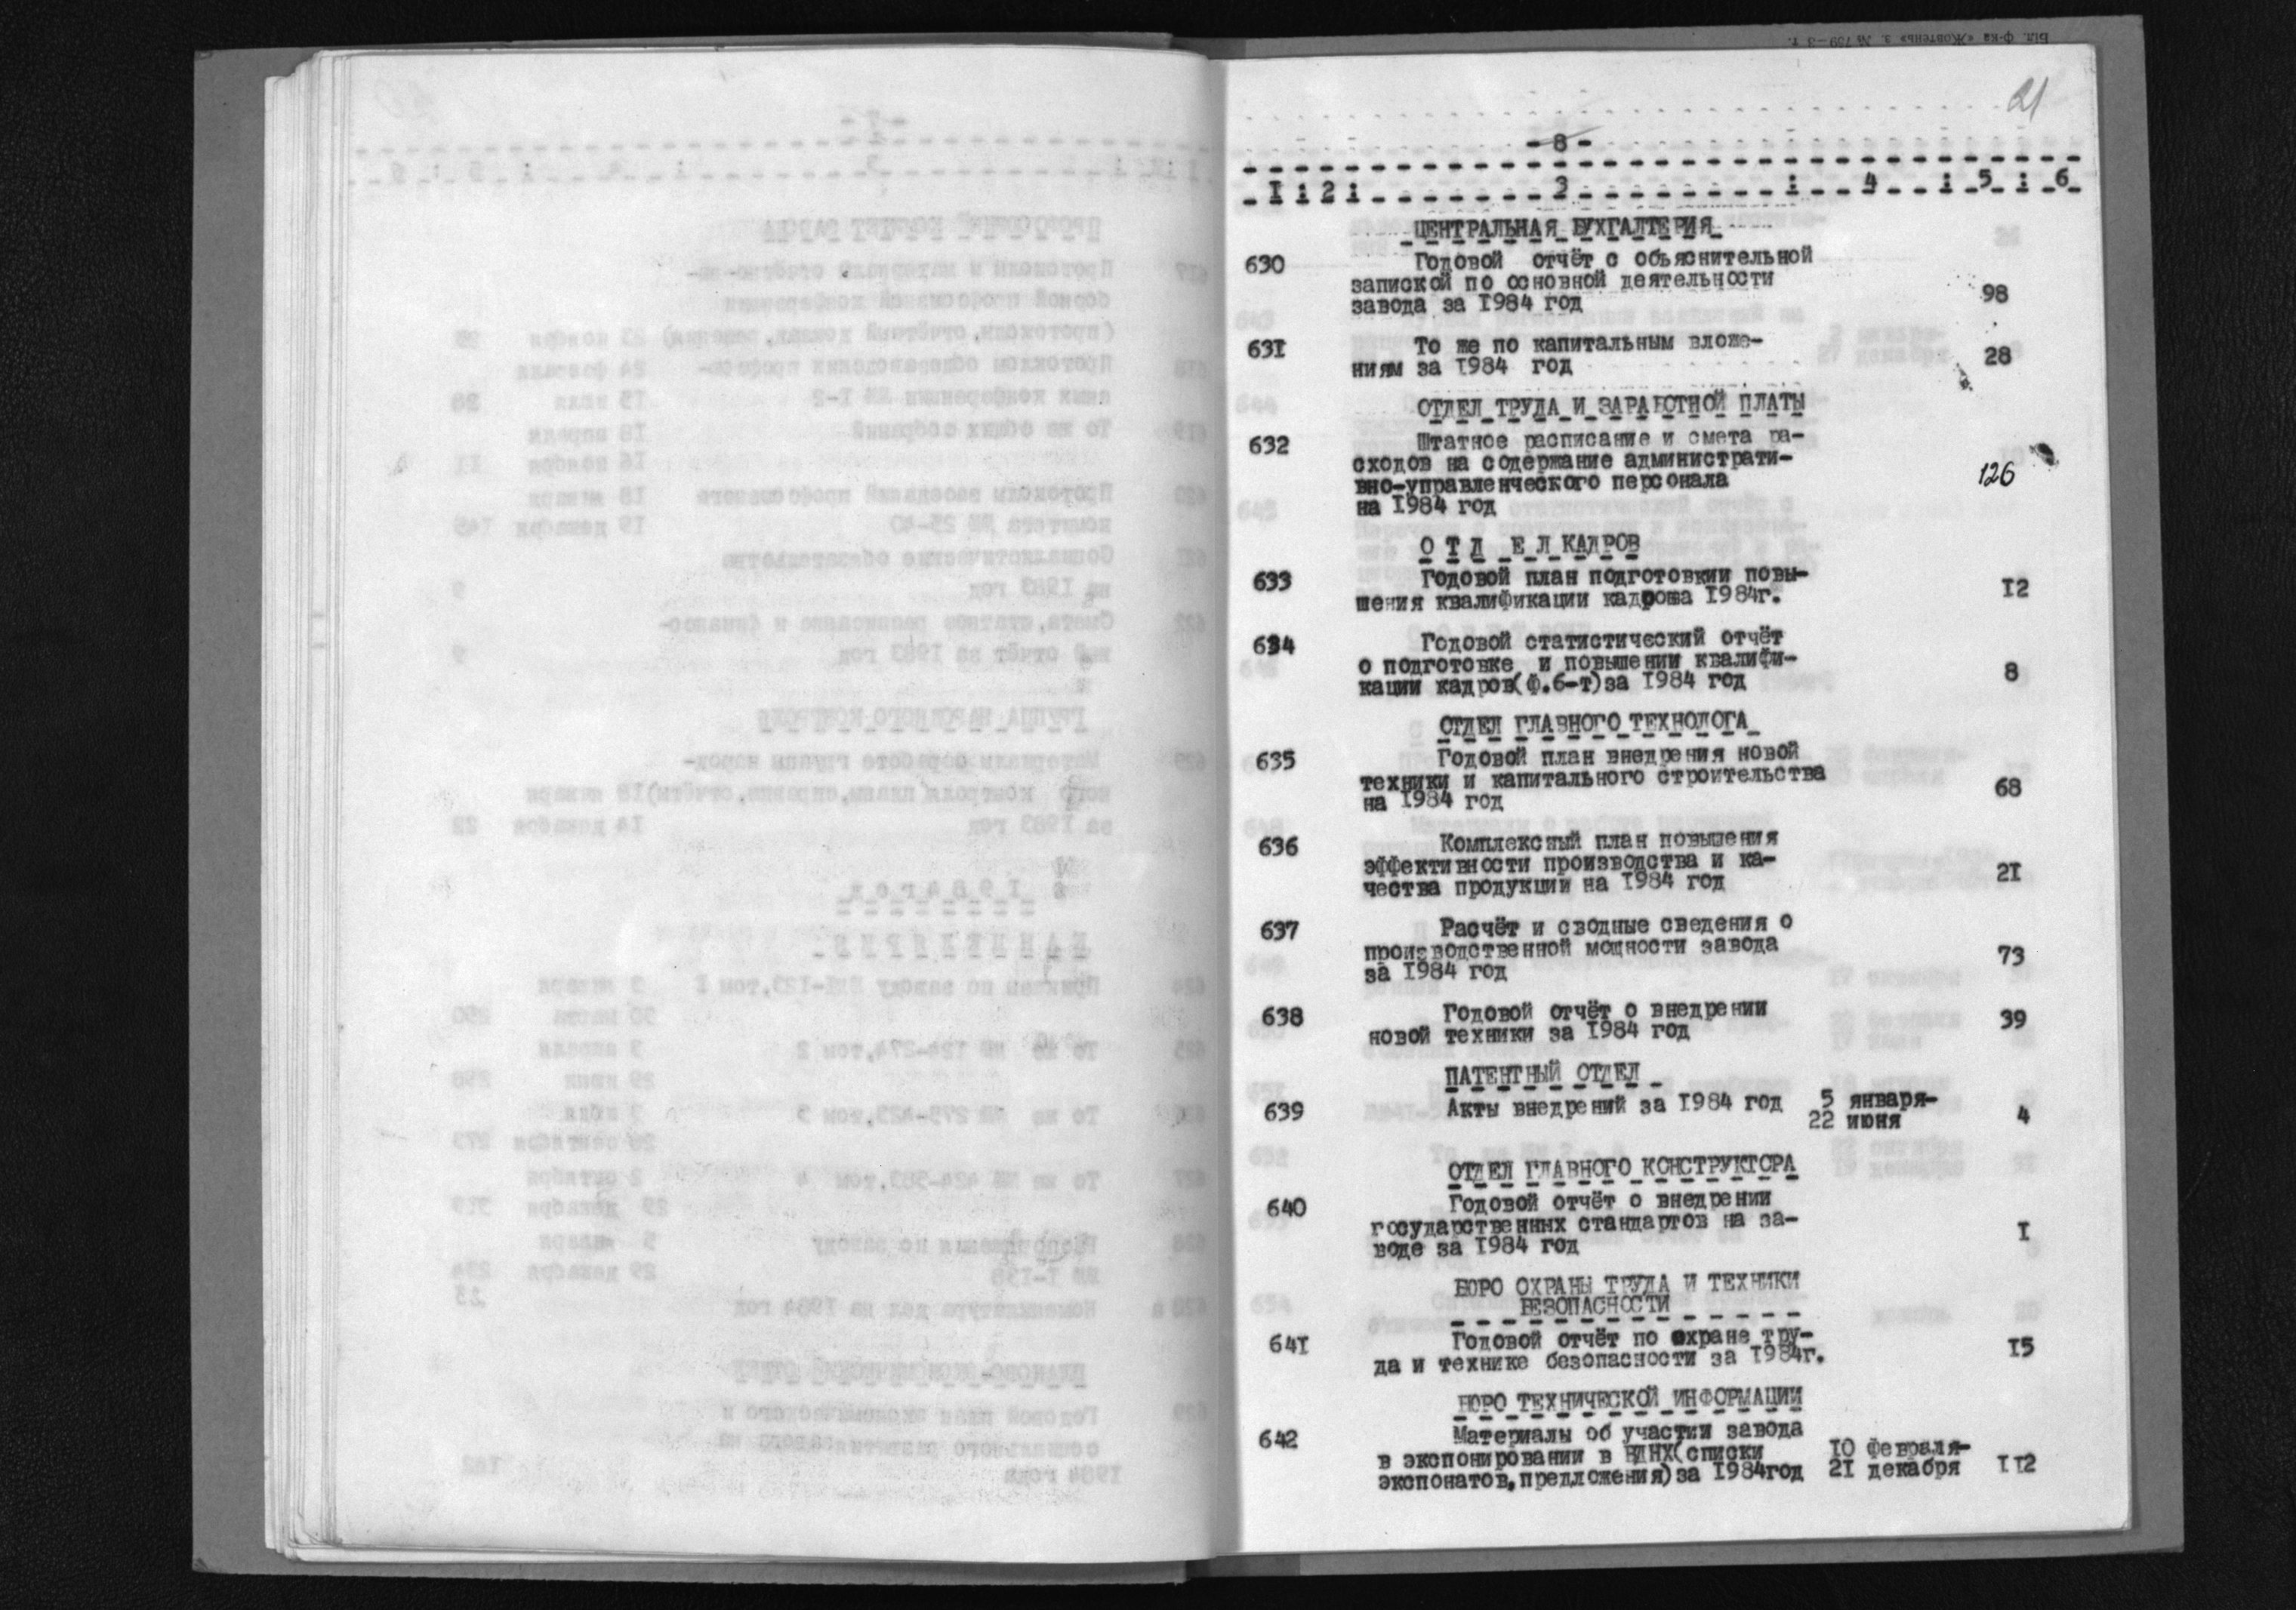 21
- 8 -
I : 2 : 3 : 4 : 5 : 6
ЦЕНТРАЛЬНАЯ БУХГАЛТЕРИЯ
630 Годовой отчёт с объяснительной
запиской по основной деятельности
завода за 1984 год 98
631 То же по капитальным вложе-
ниям за 1984 год 28
ОТДЕЛ ТРУДА И ЗАРАБОТНОЙ ПЛАТЫ
632 Штатное расписание и смета ра-
сходов на содержание администрати-
вно-управленческого персонала 126
на 1984 год
О Т Д Е Л КАДРОВ
633 Годовой план подготовкии повы-
шения квалификации кадрова 1984г. 12
634 Годовой статистический отчёт
о подготовке и повышении квалифи-
кации кадров(ф.6-т)за 1984 год 8
ОТДЕЛ ГЛАВНОГО ТЕХНОЛОГА
635 Годовой план внедрения новой
техники и капитального строительства
на 1984 год 68
636 Комплексный план повышения
эффективности производства и ка-
чества продукции на 1984 год 21
637 Расчёт и сводные сведения о
производственной мощности завода
за 1984 год 73
638 Годовой отчёт о внедрении
новой техники за 1984 год 39
ПАТЕНТНЫЙ ОТДЕЛ
639 Акты внедрений за 1984 год 5 января-
22 июня 4
ОТДЕЛ ГЛАВНОГО КОНСТРУКТОРА
640 Годовой отчёт о внедрении
государственных стандартов на за-
воде за 1984 год I
БЮРО ОХРАНЫ ТРУДА И ТЕХНИКИ
БЕЗОПАСНОСТИ
641 Годовой отчёт по охране тру-
да и технике безопасности за 1984г. 15
БЮРО ТЕХНИЧЕСКОЙ ИНФОРМАЦИИ
642 Материалы об участии завода
в экспонировании в ВДНХ(списки 10 февраля-
экспонатов,предложения)за 1984год 21 декабря 112